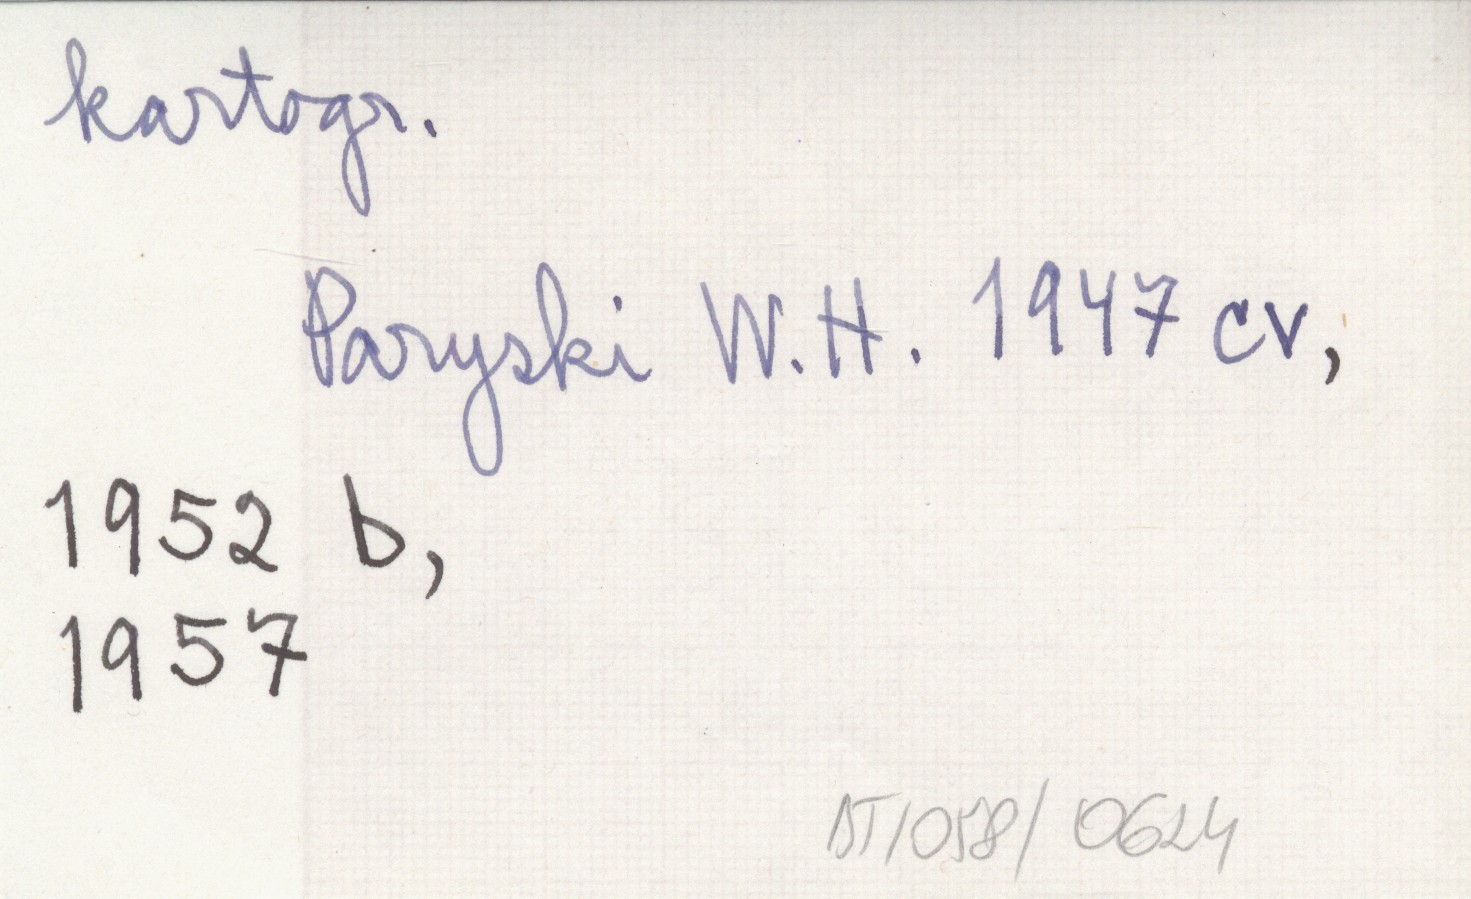 kartogr.
Paryski W.H. 1947 cv,
1952 b,
1957
BT/058/0624